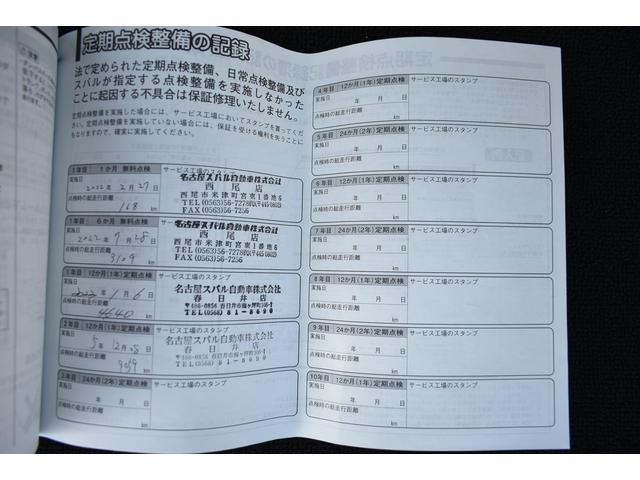 定期点検整備の記録
法で定められた定期点検整備、日常点検整備及び
スバルが指定する点検整備を実施しなかった
ことに起因する不具合は保証修理いたしません。
定期点検整備を実施した場合には、サービス工場においてスタンプを貰ってください。
定期点検整備を実施していない場合には、保証を受ける権利を失うことに
なりますので、確実に実施してください。
1年目 1か月 無料点検 サービス工場のスタンプ
実施日
2022年2月27日
点検時の総走行距離
168 km
名古屋スバル自動車株式会社
西尾店
西尾市米津町宮東1番地6
TEL(0563)56-7278
FAX(0563)56-7256
1年目 6か月 無料点検 サービス工場のスタンプ
実施日
2022年7月28日
点検時の総走行距離
3109 km
名古屋スバル自動車株式会社
西尾店
西尾市米津町宮東1番地6
TEL(0563)56-7278
FAX(0563)56-7256
1年目 12か月(1年)定期点検 サービス工場のスタンプ
実施日
年1月6日
点検時の総走行距離
4640 km
名古屋スバル自動車株式会社
春日井店
TEL(0568)81-8690
2年目 12か月(1年)定期点検 サービス工場のスタンプ
実施日
5年12月 日
点検時の総走行距離
km
名古屋スバル自動車株式会社
春日井店
TEL(0568)81-8690
3年目 24か月(2年)定期点検 サービス工場のスタンプ
実施日
年 月 日
点検時の総走行距離
km
4年目 12か月(1年)定期点検 サービス工場のスタンプ
実施日
年 月 日
点検時の総走行距離
km
5年目 24か月(2年)定期点検 サービス工場のスタンプ
実施日
年 月 日
点検時の総走行距離
km
6年目 12か月(1年)定期点検 サービス工場のスタンプ
実施日
年 月 日
点検時の総走行距離
km
7年目 24か月(2年)定期点検 サービス工場のスタンプ
実施日
年 月 日
点検時の総走行距離
km
8年目 12か月(1年)定期点検 サービス工場のスタンプ
実施日
年 月 日
点検時の総走行距離
km
9年目 24か月(2年)定期点検 サービス工場のスタンプ
実施日
年 月 日
点検時の総走行距離
km
10年目 12か月(1年)定期点検 サービス工場のスタンプ
実施日
年 月 日
点検時の総走行距離
km